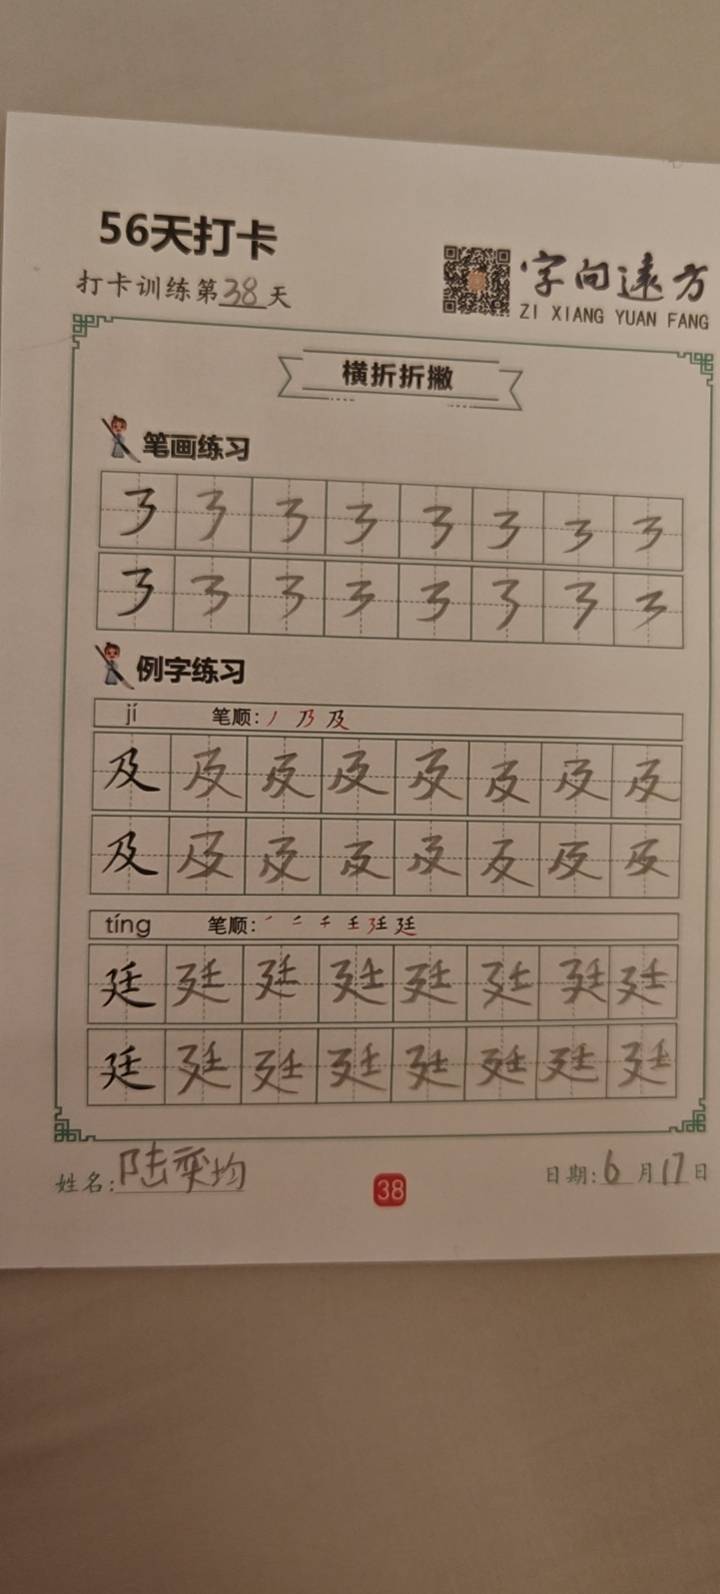 56天打卡
打卡训练第38天
字向遠方
ZI XIANG YUAN FANG
横折折撇
笔画练习
㇋ ㇋ ㇋ ㇋ ㇋ ㇋ ㇋ ㇋
㇋ ㇋ ㇋ ㇋ ㇋ ㇋ ㇋ ㇋
例字练习
jí 笔顺：丿 乃 及
及 及 及 及 及 及 及 及
及 及 及 及 及 及 及 及
tíng 笔顺：
廷 廷 廷 廷 廷 廷 廷 廷
廷 廷 廷 廷 廷 廷 廷 廷
姓名：陆奕均
38
日期：6月17日